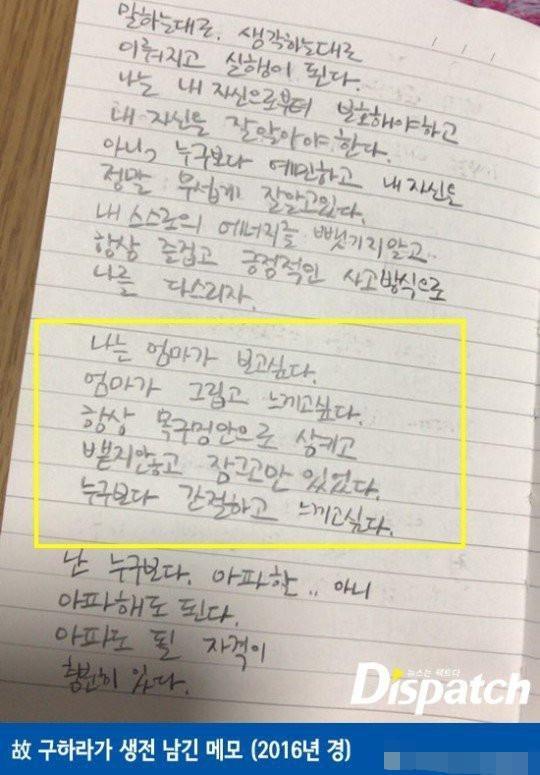 말하는대로. 생각하는대로
이뤄지고 실행이 된다.
나는 내 자신으로부터 보호해야하고
내 자신을 잘알아야한다.
아니, 누구보다 예민하고 내 자신을
정말 무섭게 잘알고있다.
내 스스로의 에너지를 뺏기지말고
항상 즐겁고 긍정적인 사고방식으로
나를 다스리자.
나는 엄마가 보고싶다.
엄마가 그립고 느끼고싶다.
항상 목구멍안으로 삼키고
뱉지안고 잠그고만 있었다.
누구보다 간절하고 느끼고싶다.
난 누구보다. 아파한.. 아니
아파해도 된다.
아파도 될 자격이
충분히 있다.
뉴스는 팩트다
Dispatch
故 구하라가 생전 남긴 메모 (2016년 경)